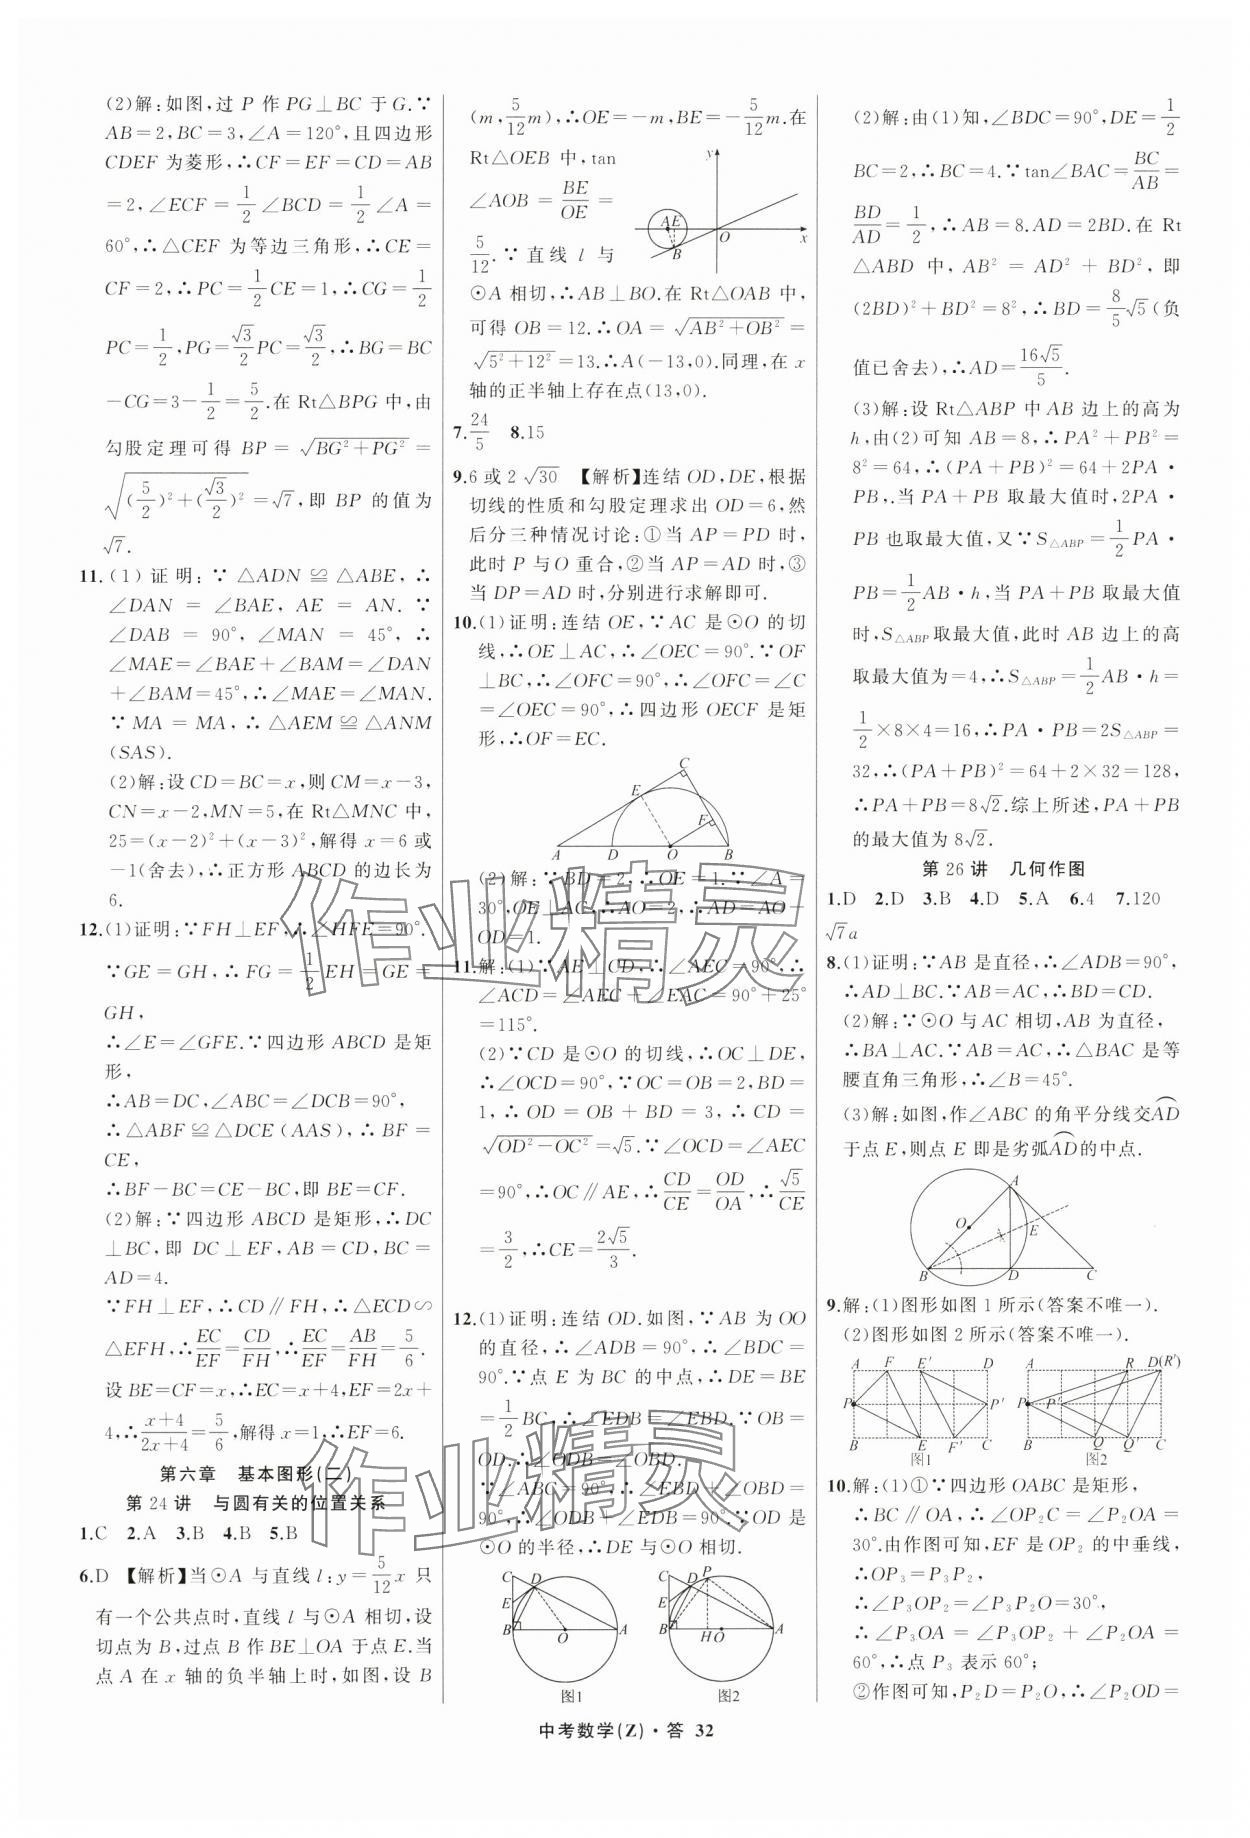 (2)解:如图,过 P 作 PG⊥BC 于 G.∵
AB=2,BC=3,∠A=120°,且四边形
CDEF 为菱形,∴CF=EF=CD=AB
=2,∠ECF=1/2∠BCD=1/2∠A=
60°,∴△CEF 为等边三角形,∴CE=
CF=2,∴PC=1/2CE=1,∴CG=1/2
PC=1/2,PG=√3/2PC=√3/2,∴BG=BC
-CG=3-1/2=5/2.在 Rt△BPG 中,由
勾股定理可得 BP=√(BG²+PG²)=
√((5/2)²+(√3/2)²)=√7,即 BP 的值为
√7.
11.(1)证明:∵△ADN≌△ABE,∴
∠DAN=∠BAE,AE=AN.∵
∠DAB=90°,∠MAN=45°,∴
∠MAE=∠BAE+∠BAM=∠DAN
+∠BAM=45°,∴∠MAE=∠MAN.
∵MA=MA,∴△AEM≌△ANM
(SAS).
(2)解:设 CD=BC=x,则 CM=x-3,
CN=x-2,MN=5,在 Rt△MNC 中,
25=(x-2)²+(x-3)²,解得 x=6 或
-1(舍去),∴正方形 ABCD 的边长为
6.
12.(1)证明:∵FH⊥EF,∴∠HFE=90°.
∵GE=GH,∴FG=1/2EH=GE=
GH,
∴∠E=∠GFE.∵四边形 ABCD 是矩
形,
∴AB=DC,∠ABC=∠DCB=90°,
∴△ABF≌△DCE(AAS),∴BF=
CE,
∴BF-BC=CE-BC,即 BE=CF.
(2)解:∵四边形 ABCD 是矩形,∴DC
⊥BC,即 DC⊥EF,AB=CD,BC=
AD=4.
∵FH⊥EF,∴CD∥FH,∴△ECD∽
△EFH,∴EC/EF=CD/FH,∴EC/EF=AB/FH=5/6.
设 BE=CF=x,∴EC=x+4,EF=2x+
4,∴(x+4)/(2x+4)=5/6,解得 x=1,∴EF=6.
第六章 基本图形(二)
第 24 讲 与圆有关的位置关系
1.C 2.A 3.B 4.B 5.B
6.D 【解析】当⊙A 与直线 l:y=5/12x 只
有一个公共点时,直线 l 与⊙A 相切,设
切点为 B,过点 B 作 BE⊥OA 于点 E.当
点 A 在 x 轴的负半轴上时,如图,设 B
(m,5/12m),∴OE=-m,BE=-5/12m.在
Rt△OEB 中,tan
∠AOB=BE/OE=
5/12.∵直线 l 与
y
A E
B
O
x
⊙A 相切,∴AB⊥BO.在 Rt△OAB 中,
可得 OB=12.∴OA=√(AB²+OB²)=
√(5²+12²)=13.∴A(-13,0).同理,在 x
轴的正半轴上存在点(13,0).
7.24/5 8.15
9.6 或 2√30 【解析】连结 OD,DE,根据
切线的性质和勾股定理求出 OD=6,然
后分三种情况讨论:①当 AP=PD 时,
此时 P 与 O 重合,②当 AP=AD 时,③
当 DP=AD 时,分别进行求解即可.
10.(1)证明:连结 OE,∵AC 是⊙O 的切
线,∴OE⊥AC,∴∠OEC=90°.∵OF
⊥BC,∴∠OFC=90°,∴∠OFC=∠C
=∠OEC=90°,∴四边形 OECF 是矩
形,∴OF=EC.
C
E
F
A D O B
(2)解:∵BD=2,∴OE=1.∵∠A=
30°,OE⊥AC,∴AO=2,∴AD=AO-
OD=1.
11.解:(1)∵AE⊥CD,∴∠AEC=90°,∴
∠ACD=∠AEC+∠EAC=90°+25°
=115°.
(2)∵CD 是⊙O 的切线,∴OC⊥DE,
∴∠OCD=90°,∵OC=OB=2,BD=
1,∴OD=OB+BD=3,∴CD=
√(OD²-OC²)=√5.∵∠OCD=∠AEC
=90°,∴OC∥AE,∴CD/CE=OD/OA,∴√5/CE
=3/2,∴CE=2√5/3.
12.(1)证明:连结 OD.如图,∵AB 为 OO
的直径,∴∠ADB=90°,∴∠BDC=
90°.∵点 E 为 BC 的中点,∴DE=BE
=1/2BC,∴∠EDB=∠EBD.∵OB=
OD,∴∠OBD=∠ODB.
∵∠ABC=90°,∴∠EBD+∠OBD=
90°,∴∠ODB+∠EDB=90°.∵OD 是
⊙O 的半径,∴DE 与⊙O 相切.
C D E B O A
图1
C D P E B H O A
图2
(2)解:由(1)知,∠BDC=90°,DE=1/2
BC=2,∴BC=4.∵tan∠BAC=BC/AB=
BD/AD=1/2,∴AB=8.AD=2BD.在 Rt
△ABD 中,AB²=AD²+BD²,即
(2BD)²+BD²=8²,∴BD=8/5√5(负
值已舍去),∴AD=16√5/5.
(3)解:设 Rt△ABP 中 AB 边上的高为
h,由(2)可知 AB=8,∴PA²+PB²=
8²=64,∴(PA+PB)²=64+2PA·
PB,.当 PA+PB 取最大值时,2PA·
PB 也取最大值,又∵S△ABP=1/2PA·
PB=1/2AB·h,当 PA+PB 取最大值
时,S△ABP取最大值,此时 AB 边上的高
取最大值为=4,∴S△ABP=1/2AB·h=
1/2×8×4=16,∴PA·PB=2S△ABP=
32,∴(PA+PB)²=64+2×32=128,
∴PA+PB=8√2.综上所述,PA+PB
的最大值为 8√2.
第 26 讲 几何作图
1.D 2.D 3.B 4.D 5.A 6.4 7.120
√7a
8.(1)证明:∵AB 是直径,∴∠ADB=90°,
∴AD⊥BC.∵AB=AC,∴BD=CD.
(2)解:∵⊙O 与 AC 相切,AB 为直径,
∴BA⊥AC.∵AB=AC,∴△BAC 是等
腰直角三角形,∴∠B=45°.
(3)解:如图,作∠ABC 的角平分线交AD
于点 E,则点 E 即是劣弧AD的中点.
A
O
E
B D C
9.解:(1)图形如图 1 所示(答案不唯一).
(2)图形如图 2 所示(答案不唯一).
A F E′ D
P P′
B E F′ C
图1
A R D(R′)
P P′
B Q Q′ C
图2
10.解:(1)①∵四边形 OABC 是矩形,
∴BC∥OA,∴∠OP₂C=∠P₂OA=
30°.由作图可知,EF 是 OP₂ 的中垂线,
∴OP₃=P₃P₂,
∴∠P₃OP₂=∠P₃P₂O=30°,
∴∠P₃OA=∠P₃OP₂+∠P₂OA=
60°,∴点 P₃ 表示 60°;
②作图可知,P₂D=P₂O,∴∠P₂OD=
中考数学(Z)·答 32
作业精灵
作业精灵